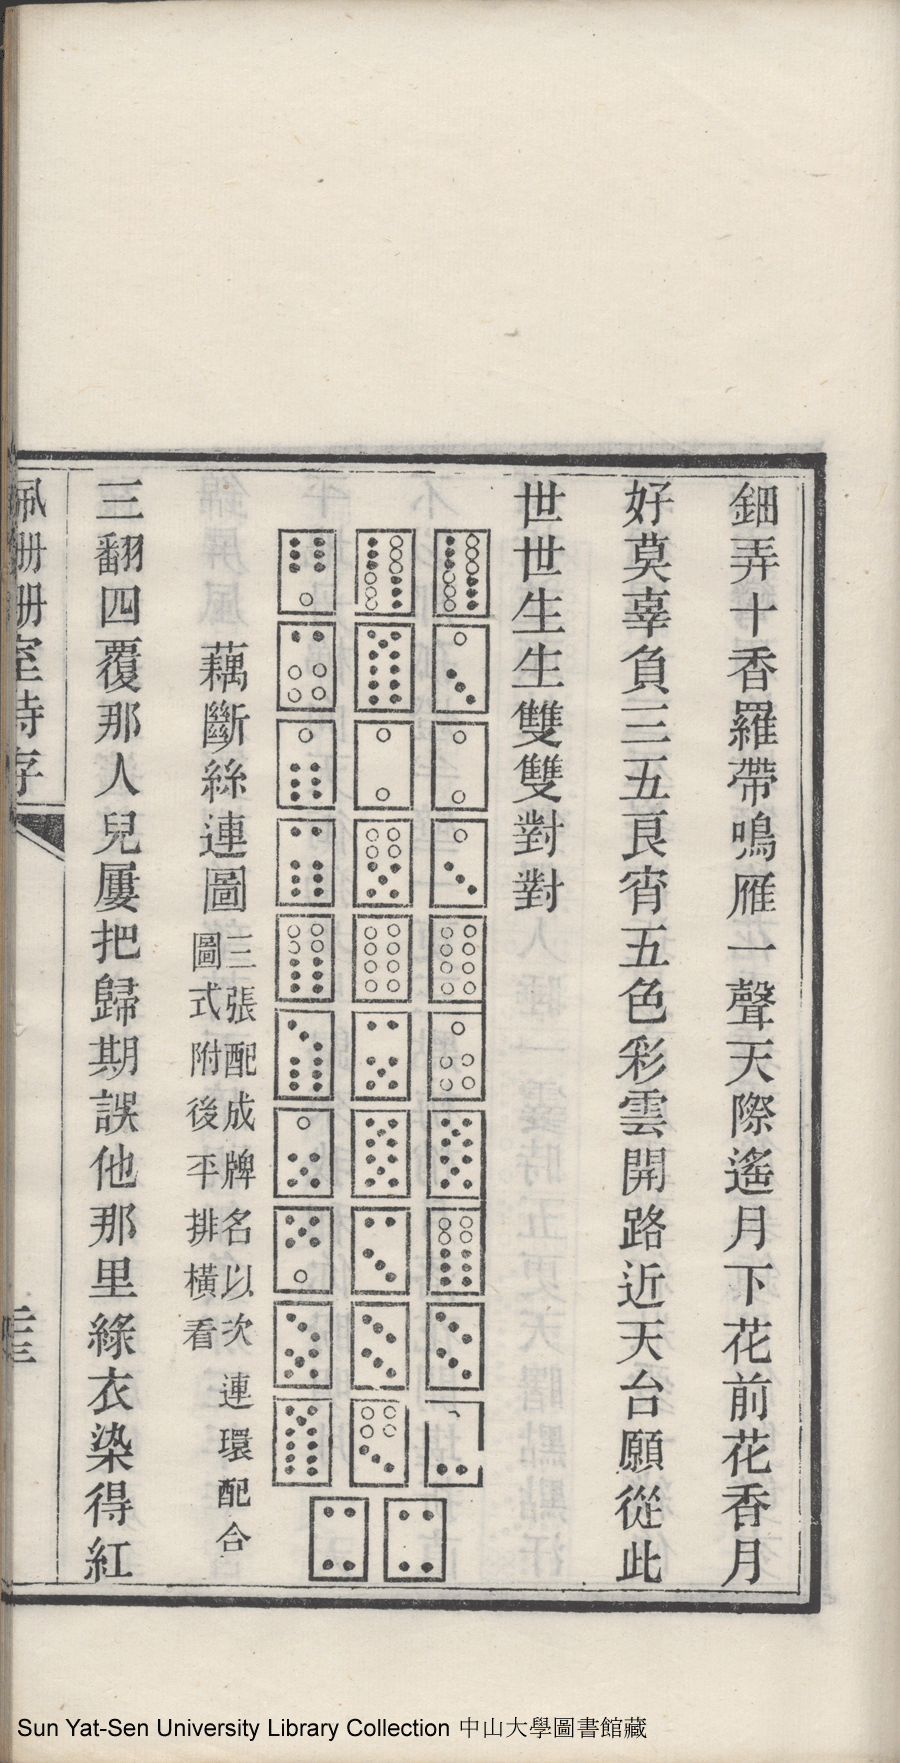 鈿弄十香羅帶鳴雁一聲天際遙月下花前花香月
好莫辜負三五良宵五色彩雲開路近天台願從此
世世生生雙雙對對
藕斷絲連圖 三張配成牌名以次連環配合
圖式附後平排橫看
三翻四覆那人兒屢把歸期誤他那里綠衣染得紅
珊珊室詩存
Sun Yat-Sen University Library Collection 中山大學圖書館藏